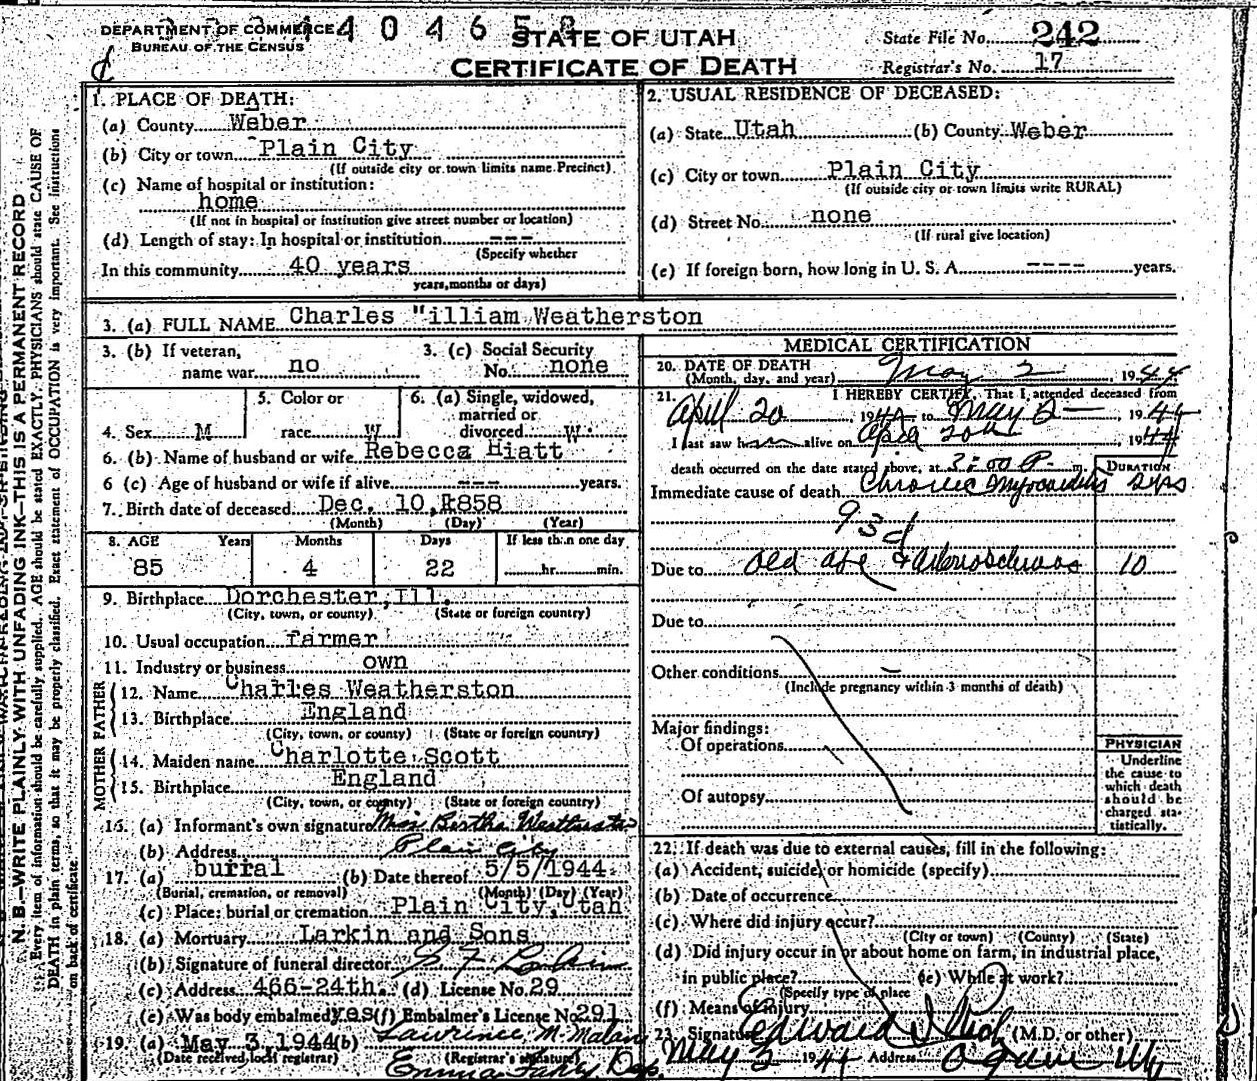 DEPARTMENT OF COMMERCE 1404658 STATE OF UTAH State File No. 242
BUREAU OF THE CENSUS CERTIFICATE OF DEATH Registrar's No. 17
1. PLACE OF DEATH:
(a) County Weber
(b) City or town Plain City
(If outside city or town limits name Precinct)
(c) Name of hospital or institution:
home
(If not in hospital or institution give street number or location)
(d) Length of stay: In hospital or institution ---
(Specify whether
In this community 40 years
years, months or days)
2. USUAL RESIDENCE OF DECEASED:
(a) State Utah (b) County Weber
(c) City or town Plain City
(If outside city or town limits write RURAL)
(d) Street No. none
(If rural give location)
(e) If foreign born, how long in U. S. A. ---- years.
3. (a) FULL NAME Charles "illiam Weatherston
3. (b) If veteran, name war no
3. (c) Social Security No. none
4. Sex M
5. Color or race W
6. (a) Single, widowed, married or divorced W
6. (b) Name of husband or wife Rebecca Hiatt
6 (c) Age of husband or wife if alive --- years.
7. Birth date of deceased Dec. 10, 1858
(Month) (Day) (Year)
8. AGE Years Months Days If less than one day
85 4 22 hr. min.
9. Birthplace Dorchester, Ill.
(City, town, or county) (State or foreign country)
10. Usual occupation farmer
11. Industry or business own
FATHER
12. Name Charles Weatherston
13. Birthplace England
(City, town, or county) (State or foreign country)
MOTHER
14. Maiden name Charlotte Scott
15. Birthplace England
(City, town, or county) (State or foreign country)
16. (a) Informant's own signature Miss Bertha Weatherston
(b) Address Plain City
17. (a) burial (b) Date thereof 5/5/1944.
(Burial, cremation, or removal) (Month) (Day) (Year)
(c) Place: burial or cremation Plain City, Utah
18. (a) Mortuary Larkin and Sons
(b) Signature of funeral director G F Larkin
(c) Address 466-24th. (d) License No. 29
(e) Was body embalmed yes (f) Embalmer's License No. 291
19. (a) May 3, 1944 (b) Lawrence M. Malan
(Date received local registrar) (Registrar's signature)
Emma Dep.
MEDICAL CERTIFICATION
20. DATE OF DEATH
(Month, day, and year) May 2, 1944
21. I HEREBY CERTIFY, That I attended deceased from
April 20 1944 to May 2 1944
I last saw him alive on April 20th 1944
death occurred on the date stated above, at 3:00 P. m.
DURATION
Immediate cause of death Chronic Myocarditis 2 yrs
93d
Due to old age & arteriosclerosis 10
Due to
Other conditions -
(Include pregnancy within 3 months of death)
Major findings:
Of operations
Of autopsy
PHYSICIAN
Underline
the cause to
which death
should be
charged sta-
tistically.
22. If death was due to external causes, fill in the following:
(a) Accident, suicide, or homicide (specify)
(b) Date of occurrence
(c) Where did injury occur?
(City or town) (County) (State)
(d) Did injury occur in or about home on farm, in industrial place,
in public place? (e) While at work?
(Specify type of place
(f) Means of injury
23. Signature Edward I Rich (M.D. or other)
May 3 1944 Address Ogden Ut
N. B.—WRITE PLAINLY WITH UNFADING INK—THIS IS A PERMANENT RECORD
Every item of information should be carefully supplied. AGE should be stated EXACTLY. PHYSICIANS should state CAUSE OF
DEATH in plain terms, so that it may be properly classified. Exact statement of OCCUPATION is very important. See instructions
on back of certificate.